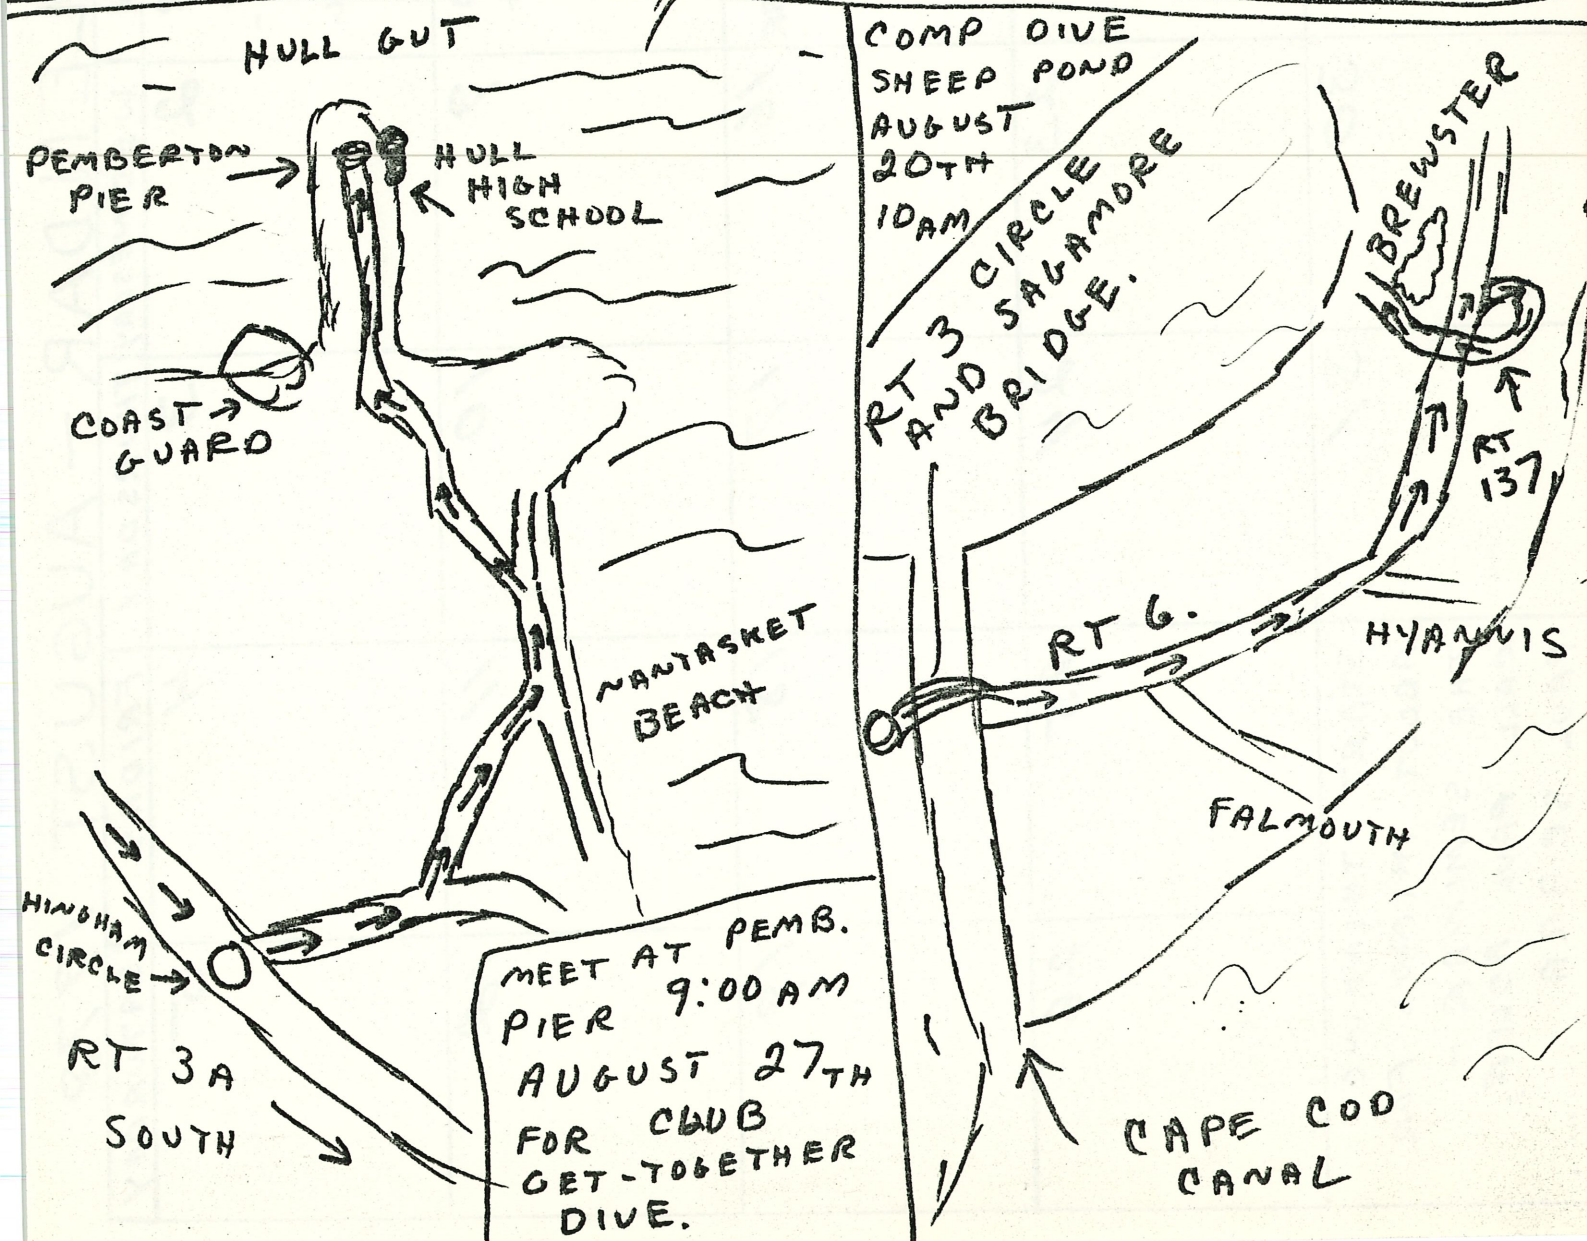 HULL GUT
PEMBERTON
PIER
HULL
HIGH
SCHOOL
COAST
GUARD
NANTASKET
BEACH
HINGHAM
CIRCLE
RT 3A
SOUTH
MEET AT PEMB.
PIER 9:00 AM
AUGUST 27TH
FOR CLUB
GET-TOGETHER
DIVE.
COMP DIVE
SHEEP POND
AUGUST
20TH
10AM
RT 3 CIRCLE
AND SAGAMORE
BRIDGE.
BREWSTER
RT
137
RT 6.
HYANNIS
FALMOUTH
CAPE COD
CANAL